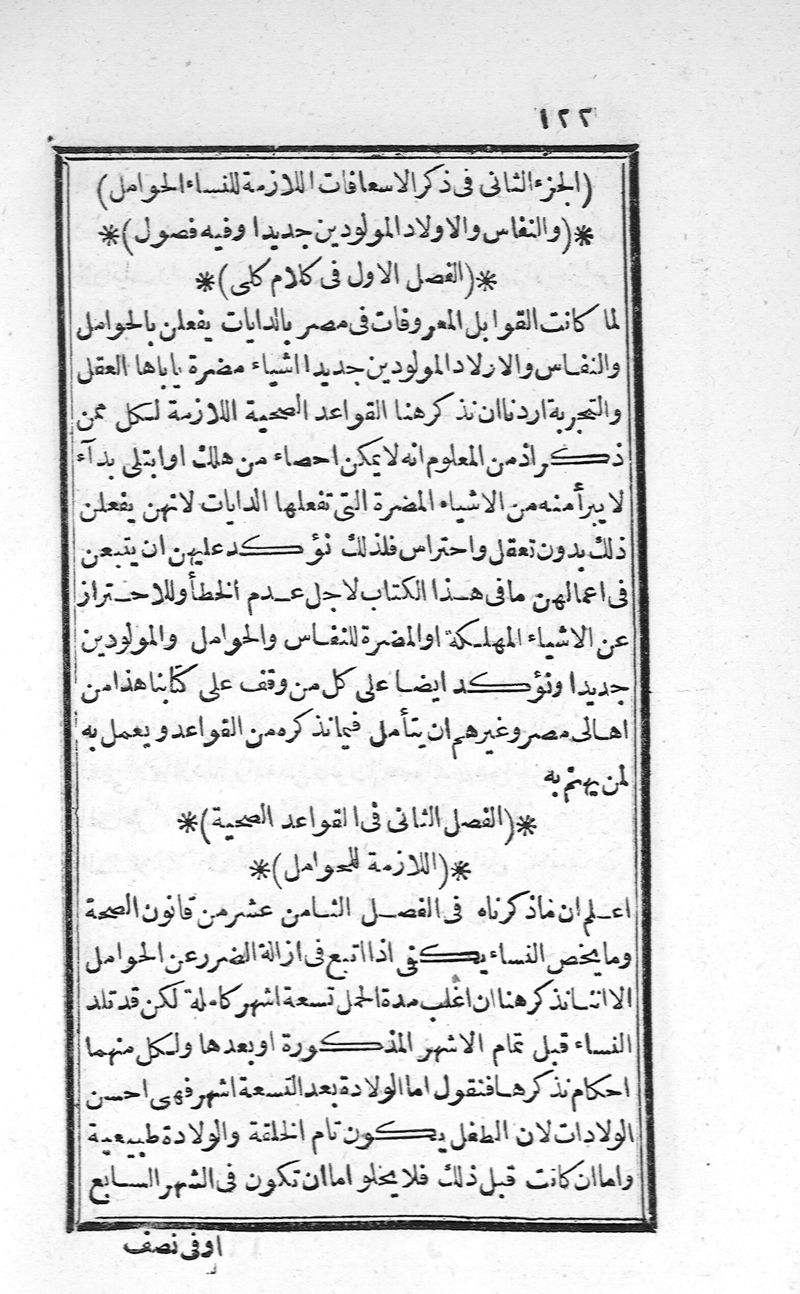 ١٢٢
(الجزء الثانى فى ذكر الاسعافات اللازمة للنساء الحوامل)
*(والنفاس والاولاد المولودين جديدا وفيه فصول)*
*(الفصل الاول فى كلام كلى)*
لما كانت القوابل المعروفات فى مصر بالدايات يفعلن بالحوامل
والنفاس والاولاد المولودين جديدا اشياء مضرة ياباها العقل
والتجربة اردنا ان نذكر هنا القواعد الصحية اللازمة لكل ممن
ذكر اذ من المعلوم انه لا يمكن احصاء من هلك او ابتلى بدآء
لا يبرأ منه من الاشياء المضرة التى تفعلها الدايات لانهن يفعلن
ذلك بدون تعقل واحتراس فلذلك نؤكد عليهن ان يتبعن
فى اعمالهن ما فى هذا الكتاب لاجل عدم الخطأ وللاحتراز
عن الاشياء المهلكة او المضرة للنفاس والحوامل والمولودين
جديدا ونؤكد ايضا على كل من وقف على كتابنا هذا من
اهالى مصر وغيرهم ان يتأمل فيما نذكره من القواعد ويعمل به
لمن يهتم به
*(الفصل الثانى فى القواعد الصحية)*
*(اللازمة للحوامل)*
اعلم ان ماذكرناه فى الفصل الثامن عشر من قانون الصحة
وما يخص النساء يكفى اذا اتبع فى ازالة الضرر عن الحوامل
الا اننا نذكر هنا ان اغلب مدة الحمل تسعة اشهر كاملة لكن قد تلد
النساء قبل تمام الاشهر المذكورة او بعدها ولكل منهما
احكام نذكرها فنقول اما الولادة بعد التسعة اشهر فهى احسن
الولادات لان الطفل يكون تام الخلقة والولادة طبيعية
واما ان كانت قبل ذلك فلا يخلو اما ان تكون فى الشهر السابع
او فى نصف